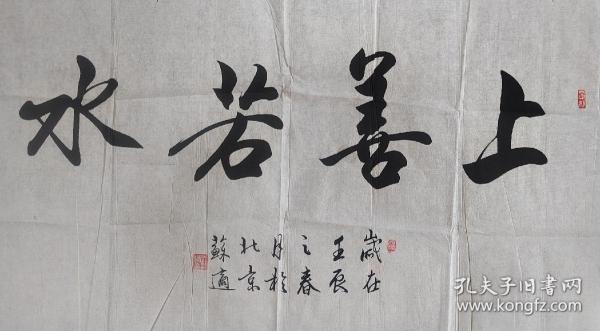 上善若水
歲在
壬辰
之春
月於
北京
蘇適
孔夫子旧书网
www.kongfz.com